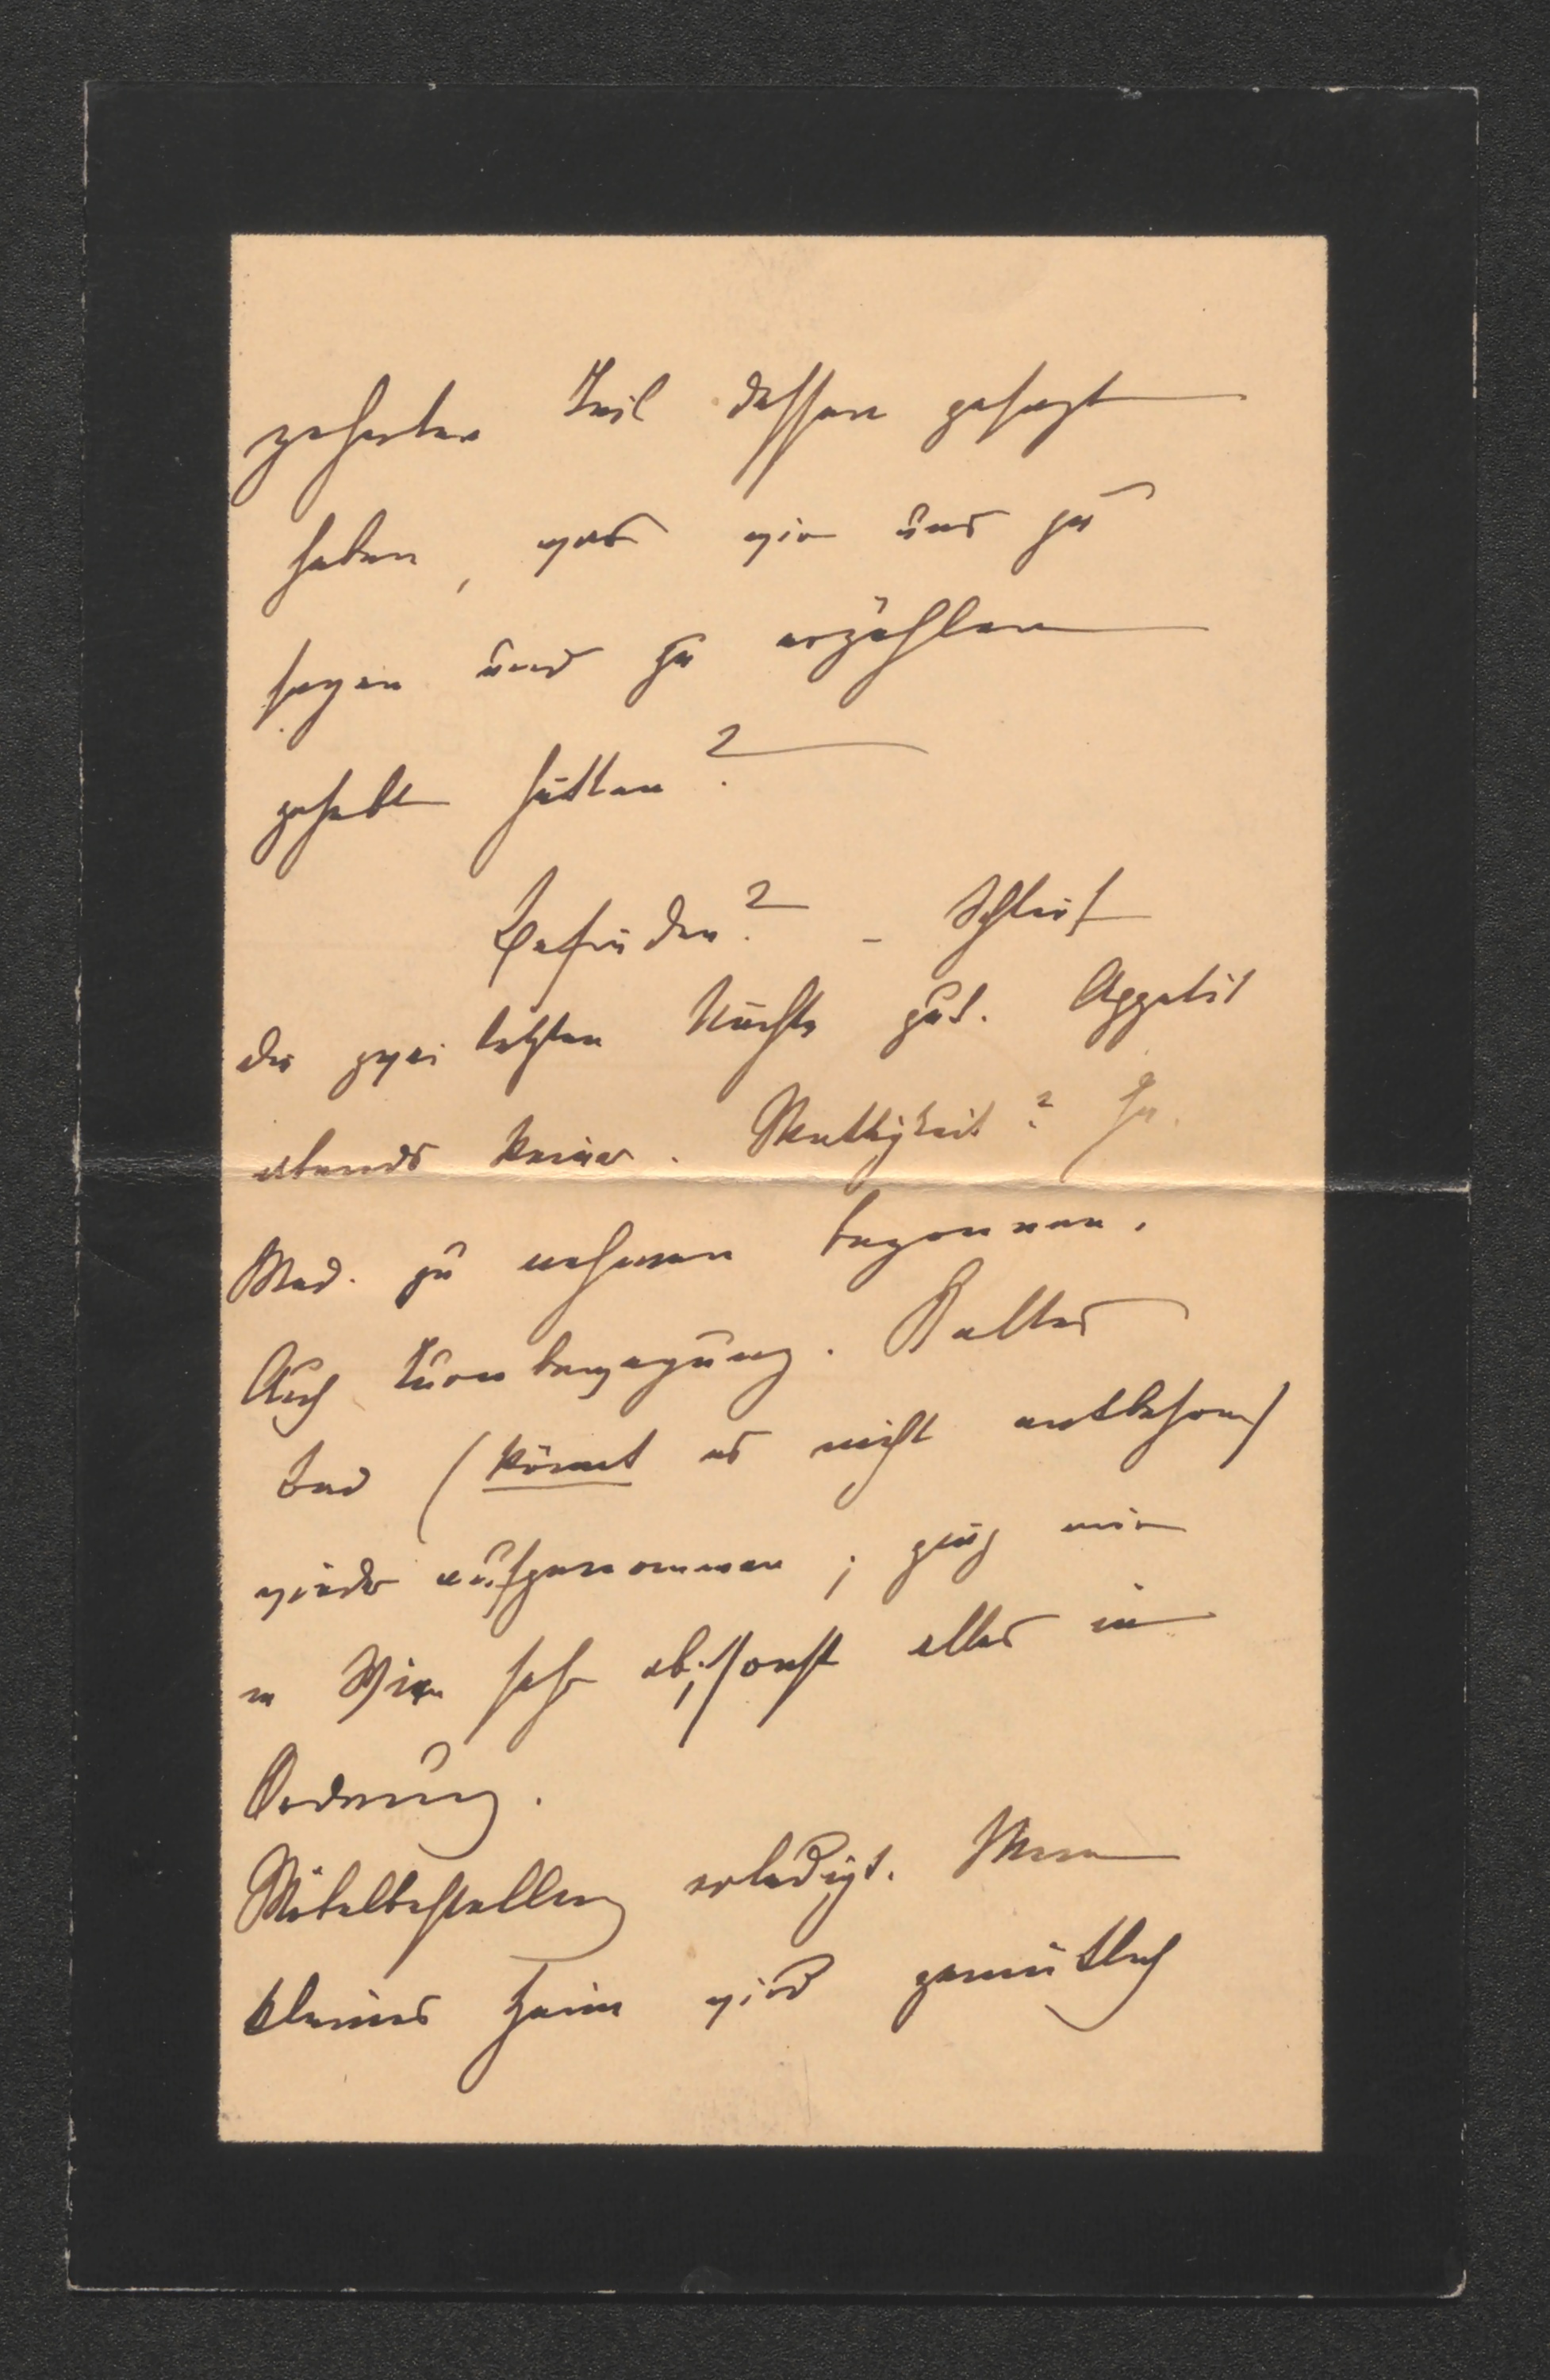 zehnten Teil dessen gesagt
haben, was wir uns zu
sagen und zu erzählen
gehabt hätten?
Befinden? – Schlaf
die zwei letzten Nächte gut. Appetit
abends keiner. Mattigkeit? Ja.
Med. zu nehmen begonnen.
Auch Turnbewegung. Kaltes
Bad (könnt es nicht entbehren)
wieder aufgenommen; ging mir
in Wien sehr ab; sonst alles in
Ordnung.
Möbelbestellung erledigt. Mein
kleines Heim wird gemütlich